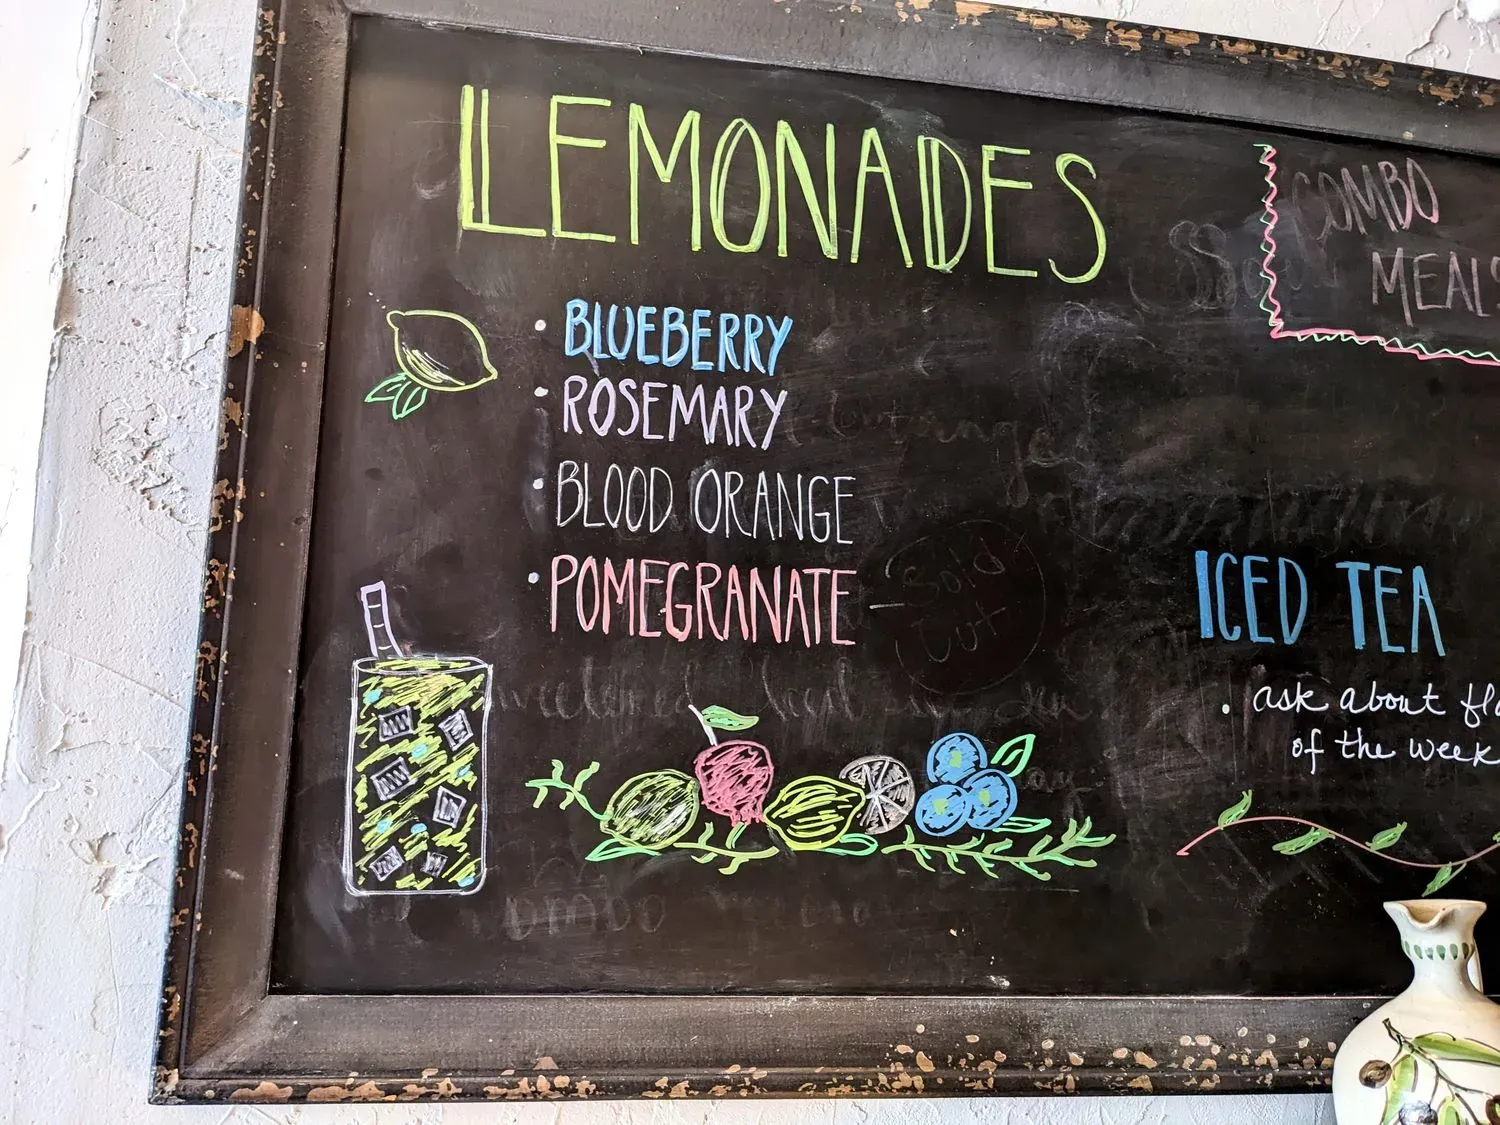 LEMONADES
COMBO
MEALS
BLUEBERRY
ROSEMARY
BLOOD ORANGE
POMEGRANATE
Sold
Out
ICED TEA
ask about
of the week